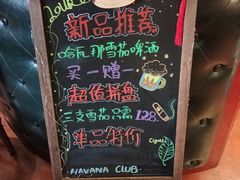 新品推荐
哈瓦那雪茄啤酒
买一赠一
超值拼盘
三支雪茄只需128
单品特价
Cigar
HAVANA CLUB